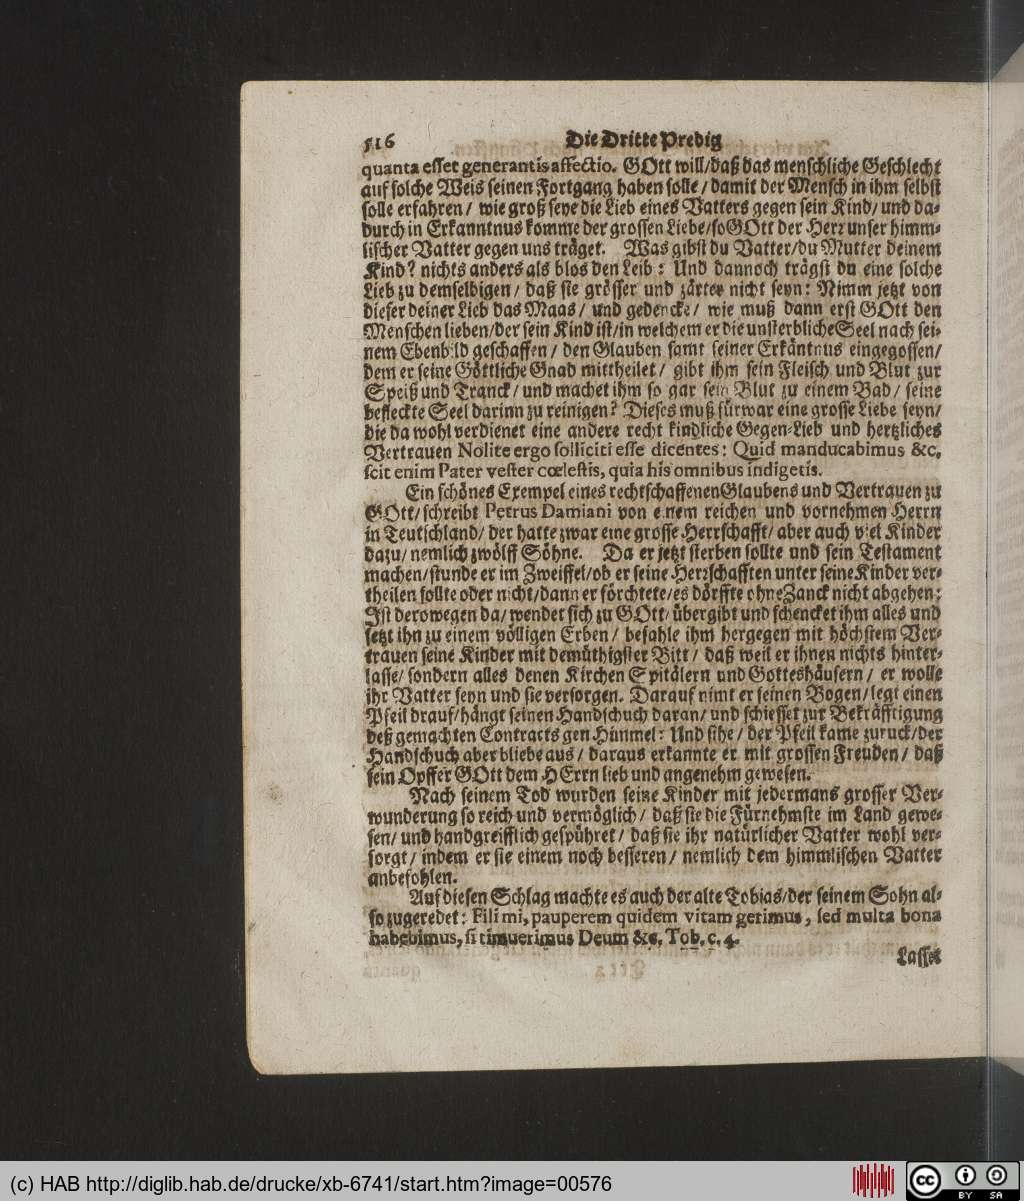 516 Die Dritte Predig
quanta esset generantis affectio. GOtt will/daß das menschliche Geschlecht
auf solche Weis seinen Fortgang haben solle/ damit der Mensch in ihm selbst
solle erfahren/ wie groß seye die Lieb eines Vatters gegen sein Kind/ und da-
durch in Erkanntnus komme der grossen Liebe/so GOtt der Herr unser himm-
lischer Vatter gegen uns träget. Was gibst du Vatter/du Mutter deinem
Kind? nichts anders als blos den Leib: Und dannoch trägst du eine solche
Lieb zu demselbigen/ daß sie grösser und zärter nicht seyn: Nimm jetzt von
dieser deiner Lieb das Maas/ und gedencke/ wie muß dann erst GOtt den
Menschen lieben/der sein Kind ist/in welchem er die unsterbliche Seel nach sei-
nem Ebenbild geschaffen/ den Glauben samt seiner Erkäntnus eingegossen/
dem er seine Göttliche Gnad mittheilet/ gibt ihm sein Fleisch und Blut zur
Speiß und Tranck/ und machet ihm so gar sein Blut zu einem Bad/ seine
befleckte Seel darinn zu reinigen? Dieses muß fürwar eine grosse Liebe seyn/
die da wohl verdienet eine andere recht kindliche Gegen-Lieb und hertzliches
Vertrauen Nolite ergo solliciti esse dicentes: Quid manducabimus &c.
scit enim Pater vester cœlestis, quia his omnibus indigetis.
Ein schönes Exempel eines rechtschaffenen Glaubens und Vertrauen zu
GOtt/ schreibt Petrus Damiani von einem reichen und vornehmen Herrn
in Teutschland/ der hatte zwar eine grosse Herrschafft/ aber auch viel Kinder
dazu/ nemlich zwölff Söhne. Da er jetzt sterben sollte und sein Testament
machen/stunde er im Zweiffel/ob er seine Herrschafften unter seine Kinder ver-
theilen sollte oder nicht/dann er förchtete/es dörffte ohne Zanck nicht abgehen:
Ist derowegen da/ wendet sich zu GOtt/ übergibt und schencket ihm alles und
setzt ihn zu einem völligen Erben/ befahle ihm hergegen mit höchstem Ver-
trauen seine Kinder mit demüthigster Bitt/ daß weil er ihnen nichts hinter-
lasse/ sondern alles denen Kirchen Spitälern und Gotteshäusern/ er wolle
ihr Vatter seyn und sie versorgen. Darauf nimt er seinen Bogen/ legt einen
Pfeil drauf/hängt seinen Handschuch daran/ und schiesset zur Bekräfftigung
deß gemachten Contracts gen Himmel: Und sihe/ der Pfeil kame zuruck/der
Handschuch aber bliebe aus/ daraus erkannte er mit grossen Freuden/ daß
sein Opffer GOtt dem HErrn lieb und angenehm gewesen.
Nach seinem Tod wurden seine Kinder mit jedermans grosser Ver-
wunderung so reich und vermöglich/ daß sie die Fürnehmste im Land gewe-
sen/ und handgreifflich gespühret/ daß sie ihr natürlicher Vatter wohl ver-
sorgt/ indem er sie einem noch besseren/ nemlich dem himmlischen Vatter
anbefohlen.
Auf diesen Schlag machte es auch der alte Tobias/der seinem Sohn al-
so zugeredet: Fili mi, pauperem quidem vitam gerimus, sed multa bona
habebimus, si timuerimus Deum &c. Tob. c. 4.
Lasset
(c) HAB http://diglib.hab.de/drucke/xb-6741/start.htm?image=00576
cc BY SA